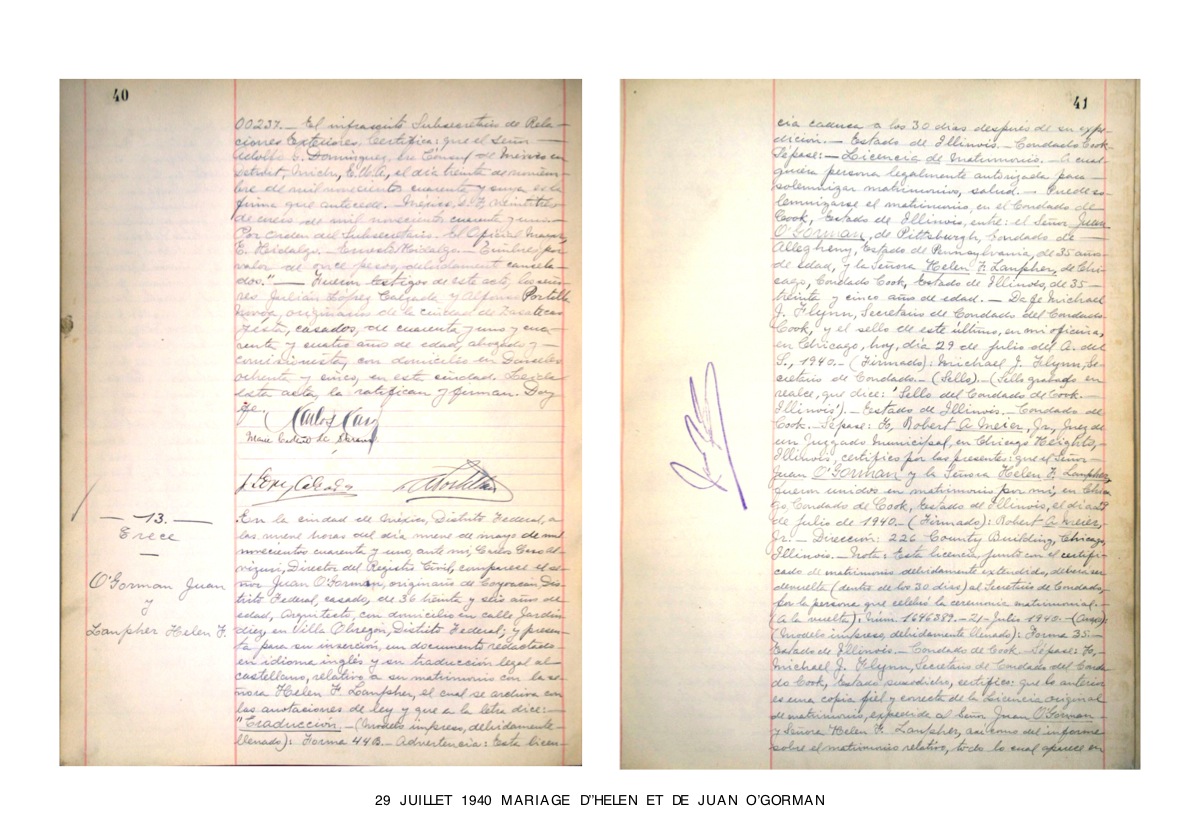 40
00237.— El infrascrito Subsecretario de Rela-
ciones Exteriores, Certifica: que el Señor
Adolfo G. Domínguez, era Consul de Mexico en
Detroit, Mich., E.U.A, el día treinta de noviem-
bre de mil novecientos cuarenta y suya es la
firma que antecede.- México, D.F. Veintitres
de enero de mil novecientos cuarenta y uno.-
Por orden del Subsecretario.- El Oficial Mayor,
E. Hidalgo.- Ernesto Hidalgo.- Timbres por
valor de once pesos, debidamente cancela-
dos."— Fueron testigos de este acto, los seño-
res Julián López Calzada y Alfonso Portillo
originarios de la ciudad de Zacatecas
casados, de cuarenta y uno y cua-
renta y cuatro años de edad, abogado y
comisionista, con domicilio en Donceles
ochenta y cinco, en esta ciudad. Leida
esta acta, la ratifican y firman. Doy
fe.
— 13. —
Trece
O'Gorman Juan
y
Lanpher Helen F.
En la ciudad de México, Distrito Federal, a
las nueve horas del día nueve de mayo de mil
novecientos cuarenta y uno, ante mi, Carlos
Director del Registro Civil, comparece el se-
ñor Juan O'Gorman, originario de Coyoacán Dis-
trito Federal, casado, de 36 treinta y seis años de
edad, Arquitecto, con domicilio en calle Jardín
diez, en Villa Obregon, Distrito Federal, y presen-
ta para su inserción, un documento redactado
en idioma inglés y su traducción legal al
castellano, relativo a su matrimonio con la se-
ñora Helen F. Lanpher, el cual se archiva con
las anotaciones de ley y que a la letra dice:—
"Traducción.—(Modelo impreso, debidamente
llenado): Forma 44B.—Advertencia: Esta licen-
41
cia caduca a los 30 dias después de su expe-
dición.— Estado de Illinois.—Condado Cook.
Sépase:— Licencia de Matrimonio.— A cual-
quiera persona legalmente autorizada para
solemnizar matrimonios, salud.— Puede so-
lemnizarse el matrimonio, en el Condado de
Cook, Estado de Illinois, entre: el Señor Juan
O'Gorman, de Pittsburgh, Condado de
Allegheny, Estado de Pennsylvania, de 35 años
de edad, y la Señora Helen F. Lanpher, de Chi-
cago, Condado Cook, Estado de Illinois, de 35
treinta y cinco años de edad.— Da fe Michael
J. Flynn, Secretario de Condado del Condado
Cook, y el sello de este último, en mi oficina,
en Chicago, hoy, día 29 de julio del A. del
S., 1940.- (Firmado): Michael J. Flynn, Se-
cretario de Condado.—(Sello).—(Sello grabado en
realce, que dice: 'Sello del Condado de Cook.—
Illinois').—Estado de Illinois.—Condado de
Cook.—Sépase: Yo, Robert A. Meier, Jr., Juez de
un Juzgado Municipal, en Chicago Heights,
Illinois, certifico por las presentes: que el Señor
Juan O'Gorman y la Señora Helen F. Lanpher,
fueron unidos en matrimonio por mi, en Chica-
go, Condado de Cook, Estado de Illinois, el dia 29
de julio de 1940.—(Firmado): Robert A. Meier,
Jr.— Dirección: 226 County Building, Chicago,
Illinois.—Nota: Esta licencia junto con el certifi-
cado de matrimonio debidamente extendido, deberá ser
devuelta (dentro de los 30 dias) al Secretario de Condado,
por la persona que celebró la ceremonia matrimonial.—
(A la vuelta): Núm. 1646389.—21-Julio 1940.—
(Modelo impreso, debidamente llenado): Forma 35.—
Estado de Illinois.—Condado de Cook.—Sépase: Yo,
Michael J. Flynn, Secretario de Condado del Conda-
do Cook, Estado susodicho, certifico: que lo anterior
es una copia fiel y correcta de la Licencia original
de matrimonio, expedida al Señor Juan O'Gorman
y Señora Helen F. Lanpher, asi como del informe
sobre el matrimonio relativo, todo lo cual aparece en
29 JUILLET 1940 MARIAGE D''HELEN ET DE JUAN O'GORMAN